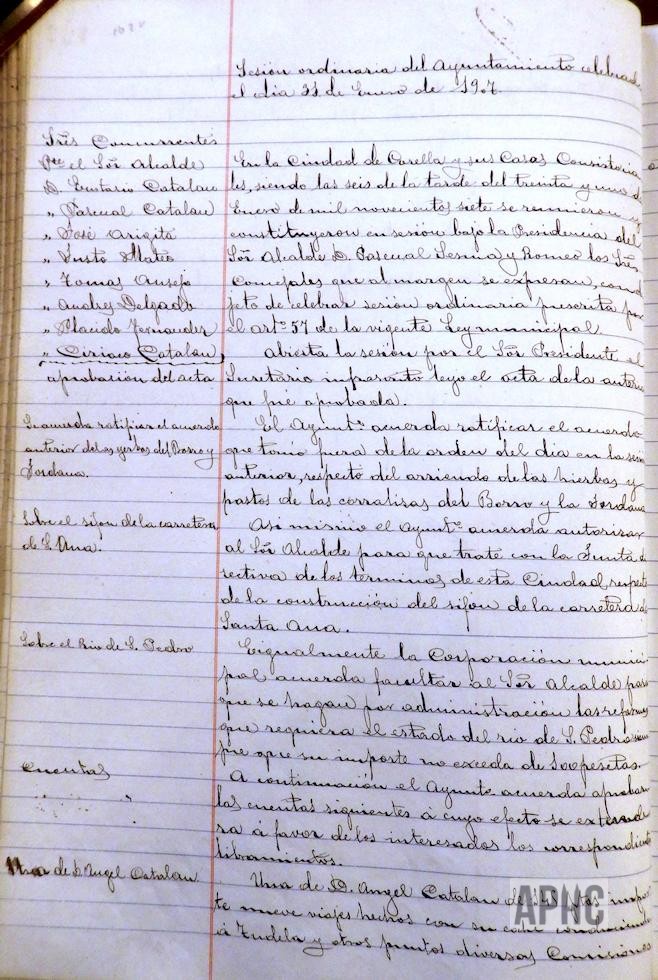 Sesión ordinaria del Ayuntamiento celebrada
el dia 31 de Enero de 1907.
Sres Concurrentes
Pte el Sor Alcalde
D. Eustasio Catalan
" Pascual Catalan
" José Arigita
" Justo Mateo
" Tomas Ausejo
" Andres Delgado
" Placido Fernandez
" Ciriaco Catalan
aprobación del acta
Se acuerda ratificar el acuerdo
anterior de las yerbas del Borro y
Jordana.
Sobre el sifon de la carretera
de S. Ana.
Sobre el Rio de S. Pedro
Cuentas
Una de D. Angel Catalan
En la Ciudad de Corella y sus Casas Consistoria
les, siendo las seis de la tarde del treinta y uno de
Enero de mil novecientos siete se reunieron y
constituyeron en sesión bajo la Presidencia del
Sor Alcalde D. Pascual Sesma y Romeo los Sres
Concejales que al margen se expresan, con ob
jeto de celebrar sesión ordinaria prescrita por
el arto 57 de la vigente Ley municipal.
Abierta la sesión por el Sor Presidente el
Secretario infrascrito leyo el acta de la anterior
que fué aprobada.
El Ayunto acuerda ratificar el acuerdo
que tomó fuera de la orden del dia en la sesion
anterior, respecto del arriendo de las hierbas y
pastos de las corralizas del Borro y la Jordana
Asi mismo el Ayunto acuerda autorizar
al Sor Alcalde para que trate con la Junta di
rectiva de los terminos de esta Ciudad, respecto
de la construcción del sifón de la carretera de
Santa Ana.
E igualmente la Corporación munici
pal acuerda facultar al Sor Alcalde para
que se hagan por administración las reformas
que requiera el estado del rio de S. Pedro siem
pre que su importe no exceda de 500 pesetas.
A continuación el Ayunto acuerda aprobar
las cuentas siguientes á cuyo efecto se extende
ra á favor de los interesados los correspondiente
libramientos.
Una de D. Angel Catalan de ptas impor
te nueve viajes hechos con su coche conduciendo
á Tudela y otros puntos diversas Comisiones
APNC